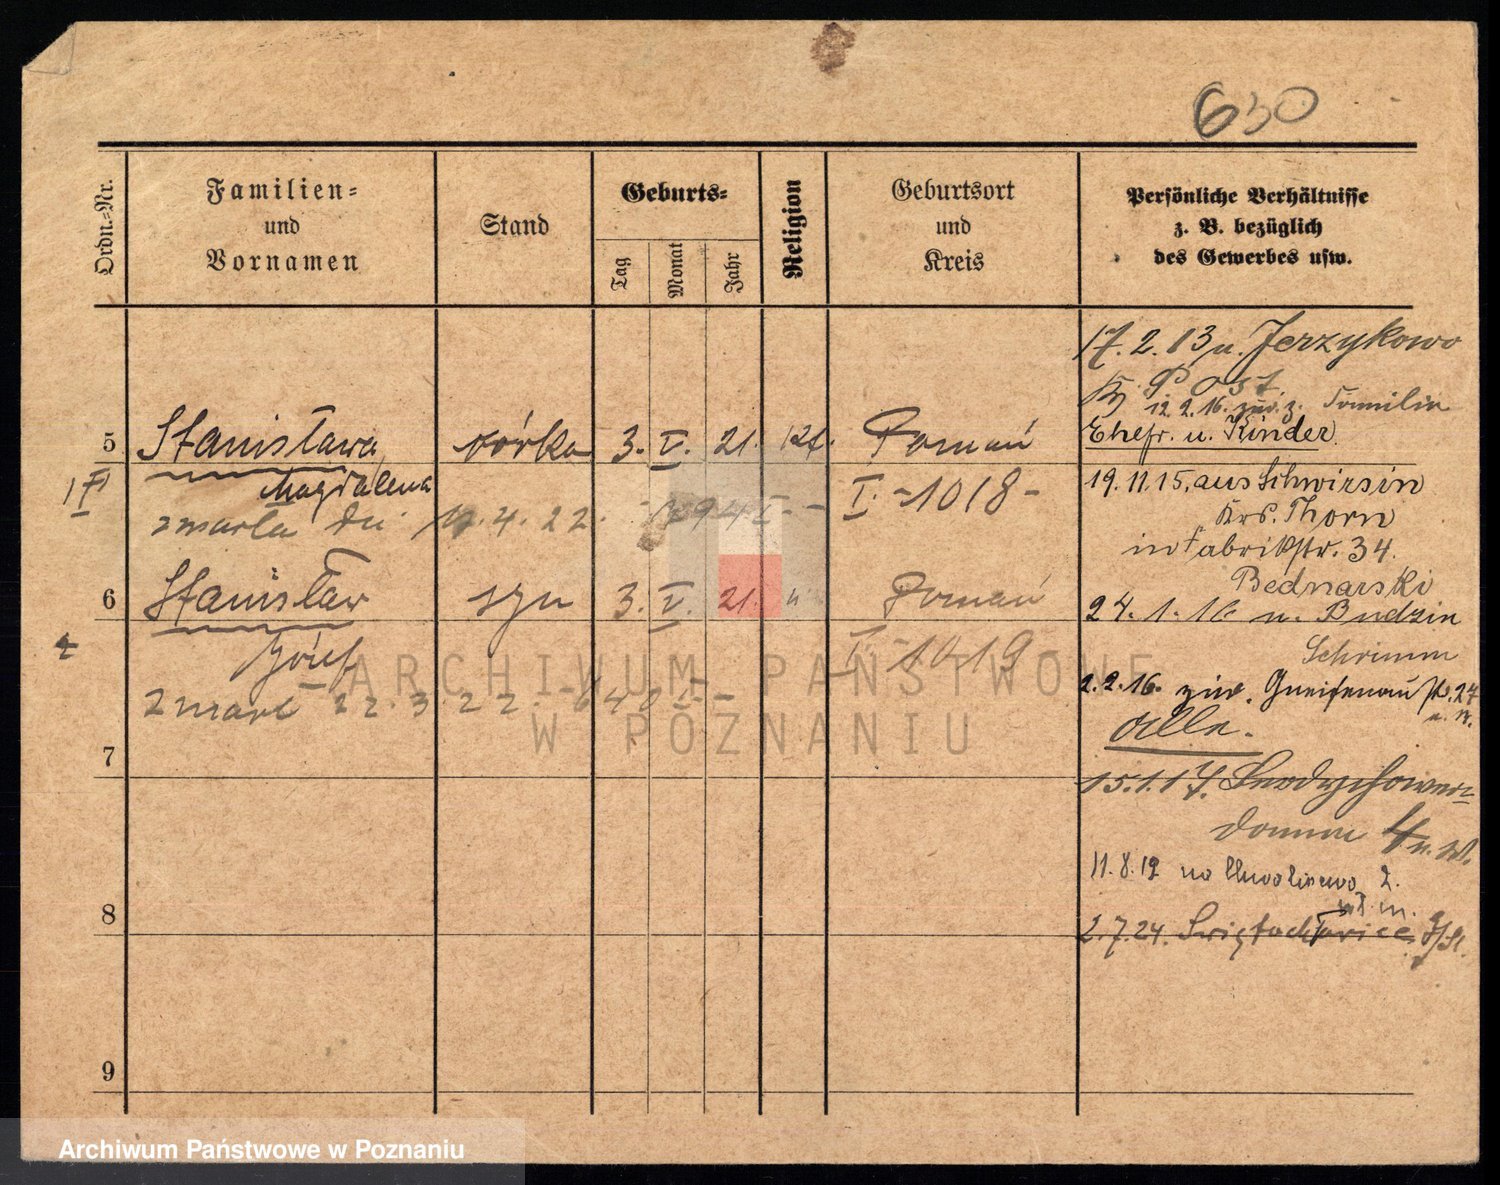 630
Ordn.=Nr.
Familien=
und
Vornamen
Stand
Geburts=
Tag
Monat
Jahr
Religion
Geburtsort
und
Kreis
Persönliche Verhältnisse
z. B. bezüglich
des Gewerbes usw.
5 Stanisława córka 3. V. 21. ktl. Poznań
Magdalena I. -1018-
zmarła dn. 4. 22.
6 Stanisław syn 3. V. 21. " Poznań
Józef I - 1019
zmarł 22. 3. 22. - 640
7
8
9
17. 2. 13 n. Jerzykowo
Kr. P. Ost.
12. 2. 16. zur. z. Familie
Ehefr. u. Kinder.
19. 11. 15, aus Schwirsin
Krs. Thorn
in Fabrikstr. 34.
Bednarski
24. 1. 16 n. Budzin
Schrimm
2. 2. 16. zur. Gneisenau str. 27
Alle.
15. 1. 17.
damm 4 n. W.
11. 8. 19 na
2. 7. 24. Świętochłowice G/Śl.
ARCHIWUM PAŃSTWOWE
W POZNANIU
Archiwum Państwowe w Poznaniu